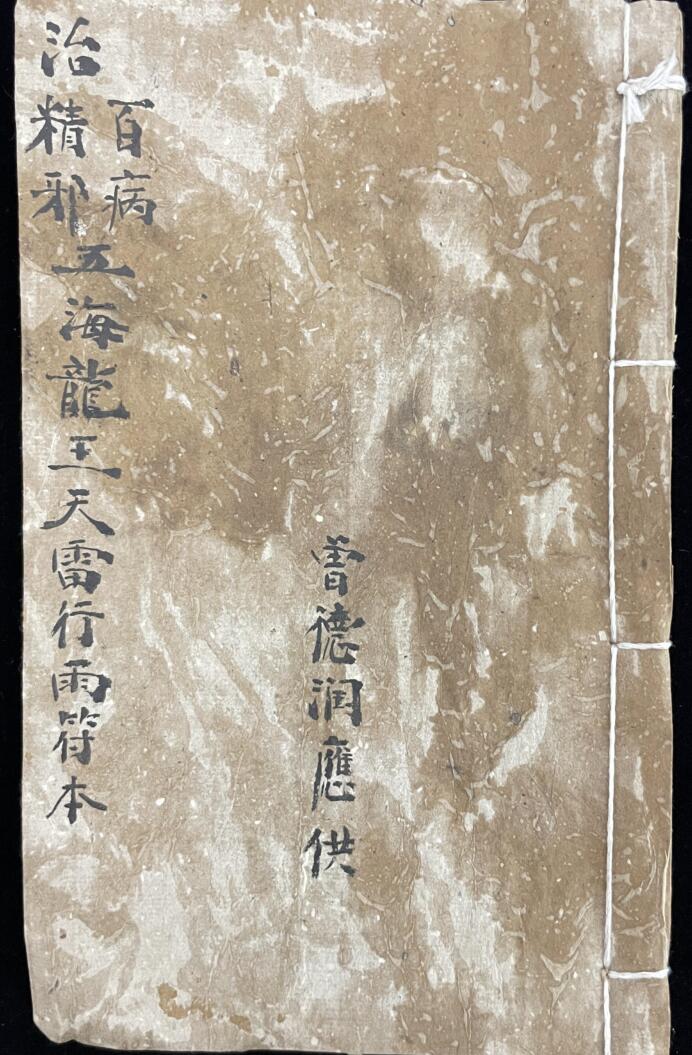 曾德润應供
治百病精邪五海龍王天雷行雨符本